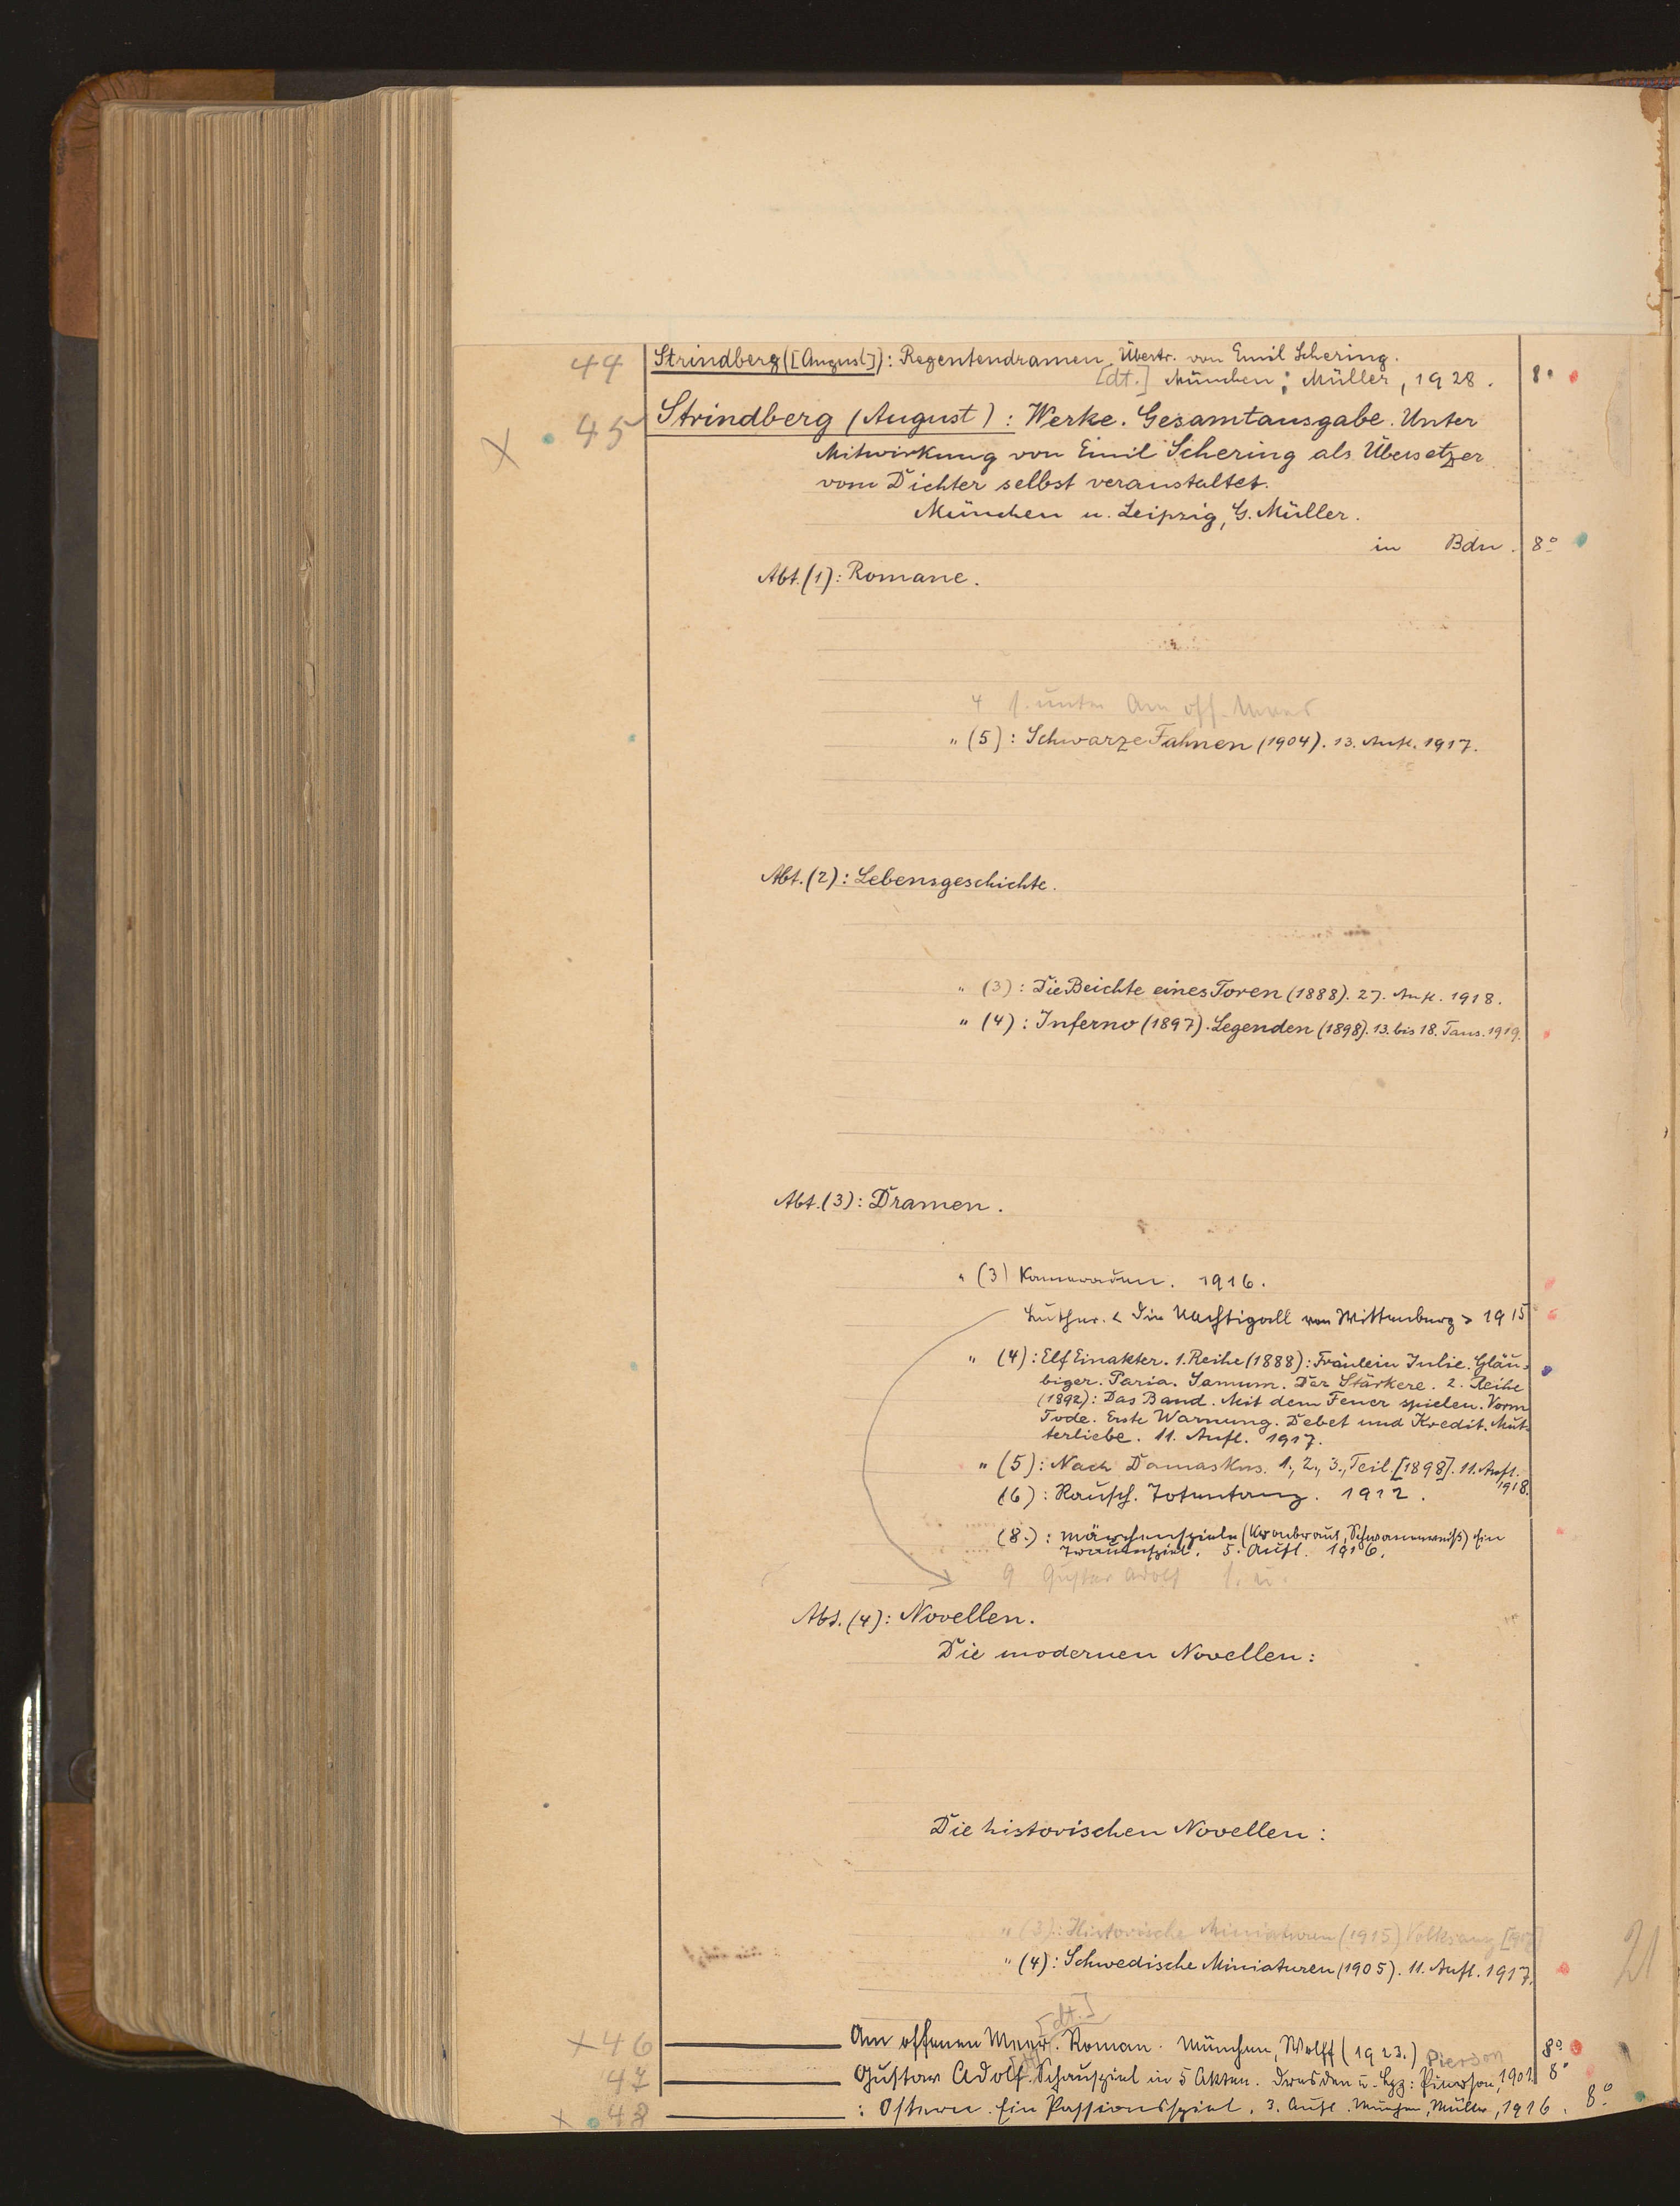 44 Strindberg ([August]): Regentendramen. Übertr. von Emil Schering.
[dt.] München: Müller, 1928. 8°
X 45 Strindberg (August): Werke. Gesamtausgabe. Unter
Mitwirkung von Emil Schering als Übersetzer
vom Dichter selbst veranstaltet.
München u. Leipzig, G. Müller.
in Bdn. 8°
Abt. (1): Romane.
4 s. unten Am off. Meer
" (5): Schwarze Fahnen (1904). 13. Aufl. 1917.
Abt. (2): Lebensgeschichte.
" (3): Die Beichte eines Toren (1888). 27. Aufl. 1918.
" (4): Inferno (1897). Legenden (1898). 13. bis 18. Taus. 1919.
Abt. (3): Dramen.
" (3) Kameraden. 1916.
Luther. < Die Nachtigall von Wittenberg > 1915
" (4): Elf Einakter. 1. Reihe (1888): Fräulein Julie. Gläu-
biger. Paria. Samum. Der Stärkere. 2. Reihe
(1892): Das Band. Mit dem Feuer spielen. Vorm
Tode. Erste Warnung. Debet und Kredit. Mut-
terliebe. 11. Aufl. 1917.
" (5): Nach Damaskus. 1., 2., 3., Teil. [1898]. 11. Aufl.
1918.
(6): Rausch. Totentanz. 1912.
(8.): Märchenspiele (Kronbraut, Schwanenweiß) Ein
Traumspiel. 5. Aufl. 1916.
9 Gustav Adolf s. u.
Abt. (4): Novellen.
Die modernen Novellen:
Die historischen Novellen:
" (3): Historische Miniaturen (1915)
" (4): Schwedische Miniaturen (1905). 11. Aufl. 1917.
21
[dt.]
X 46 ——— Am offenen Meer. Roman. München, Wolff (1923.) 8°
Pierson
47 ——— Gustav Adolf. Schauspiel in 5 Akten. Dresden u. Lpz: Pierson, 1901 8°
X 48 ——— : Ostern. Ein Passionsspiel. 3. Aufl. München, Müller, 1916. 8°